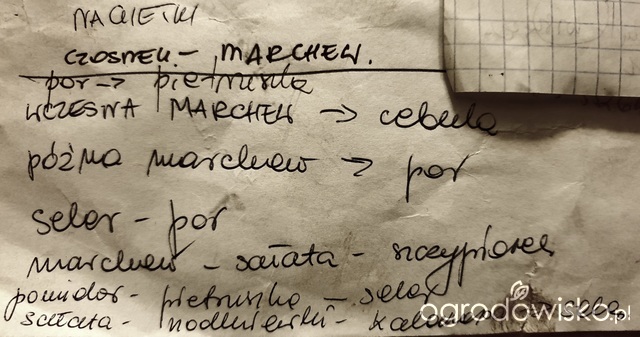 NAGIETKI
CZOSNEK - MARCHEW.
por -> pietruszka
WCZESNA MARCHEW -> cebula
późna marchew -> por
seler - por
marchew - sałata - szczypiorek
pomidor - pietruszka - seler
sałata - rzodkiewki -
ogrodowisko.pl